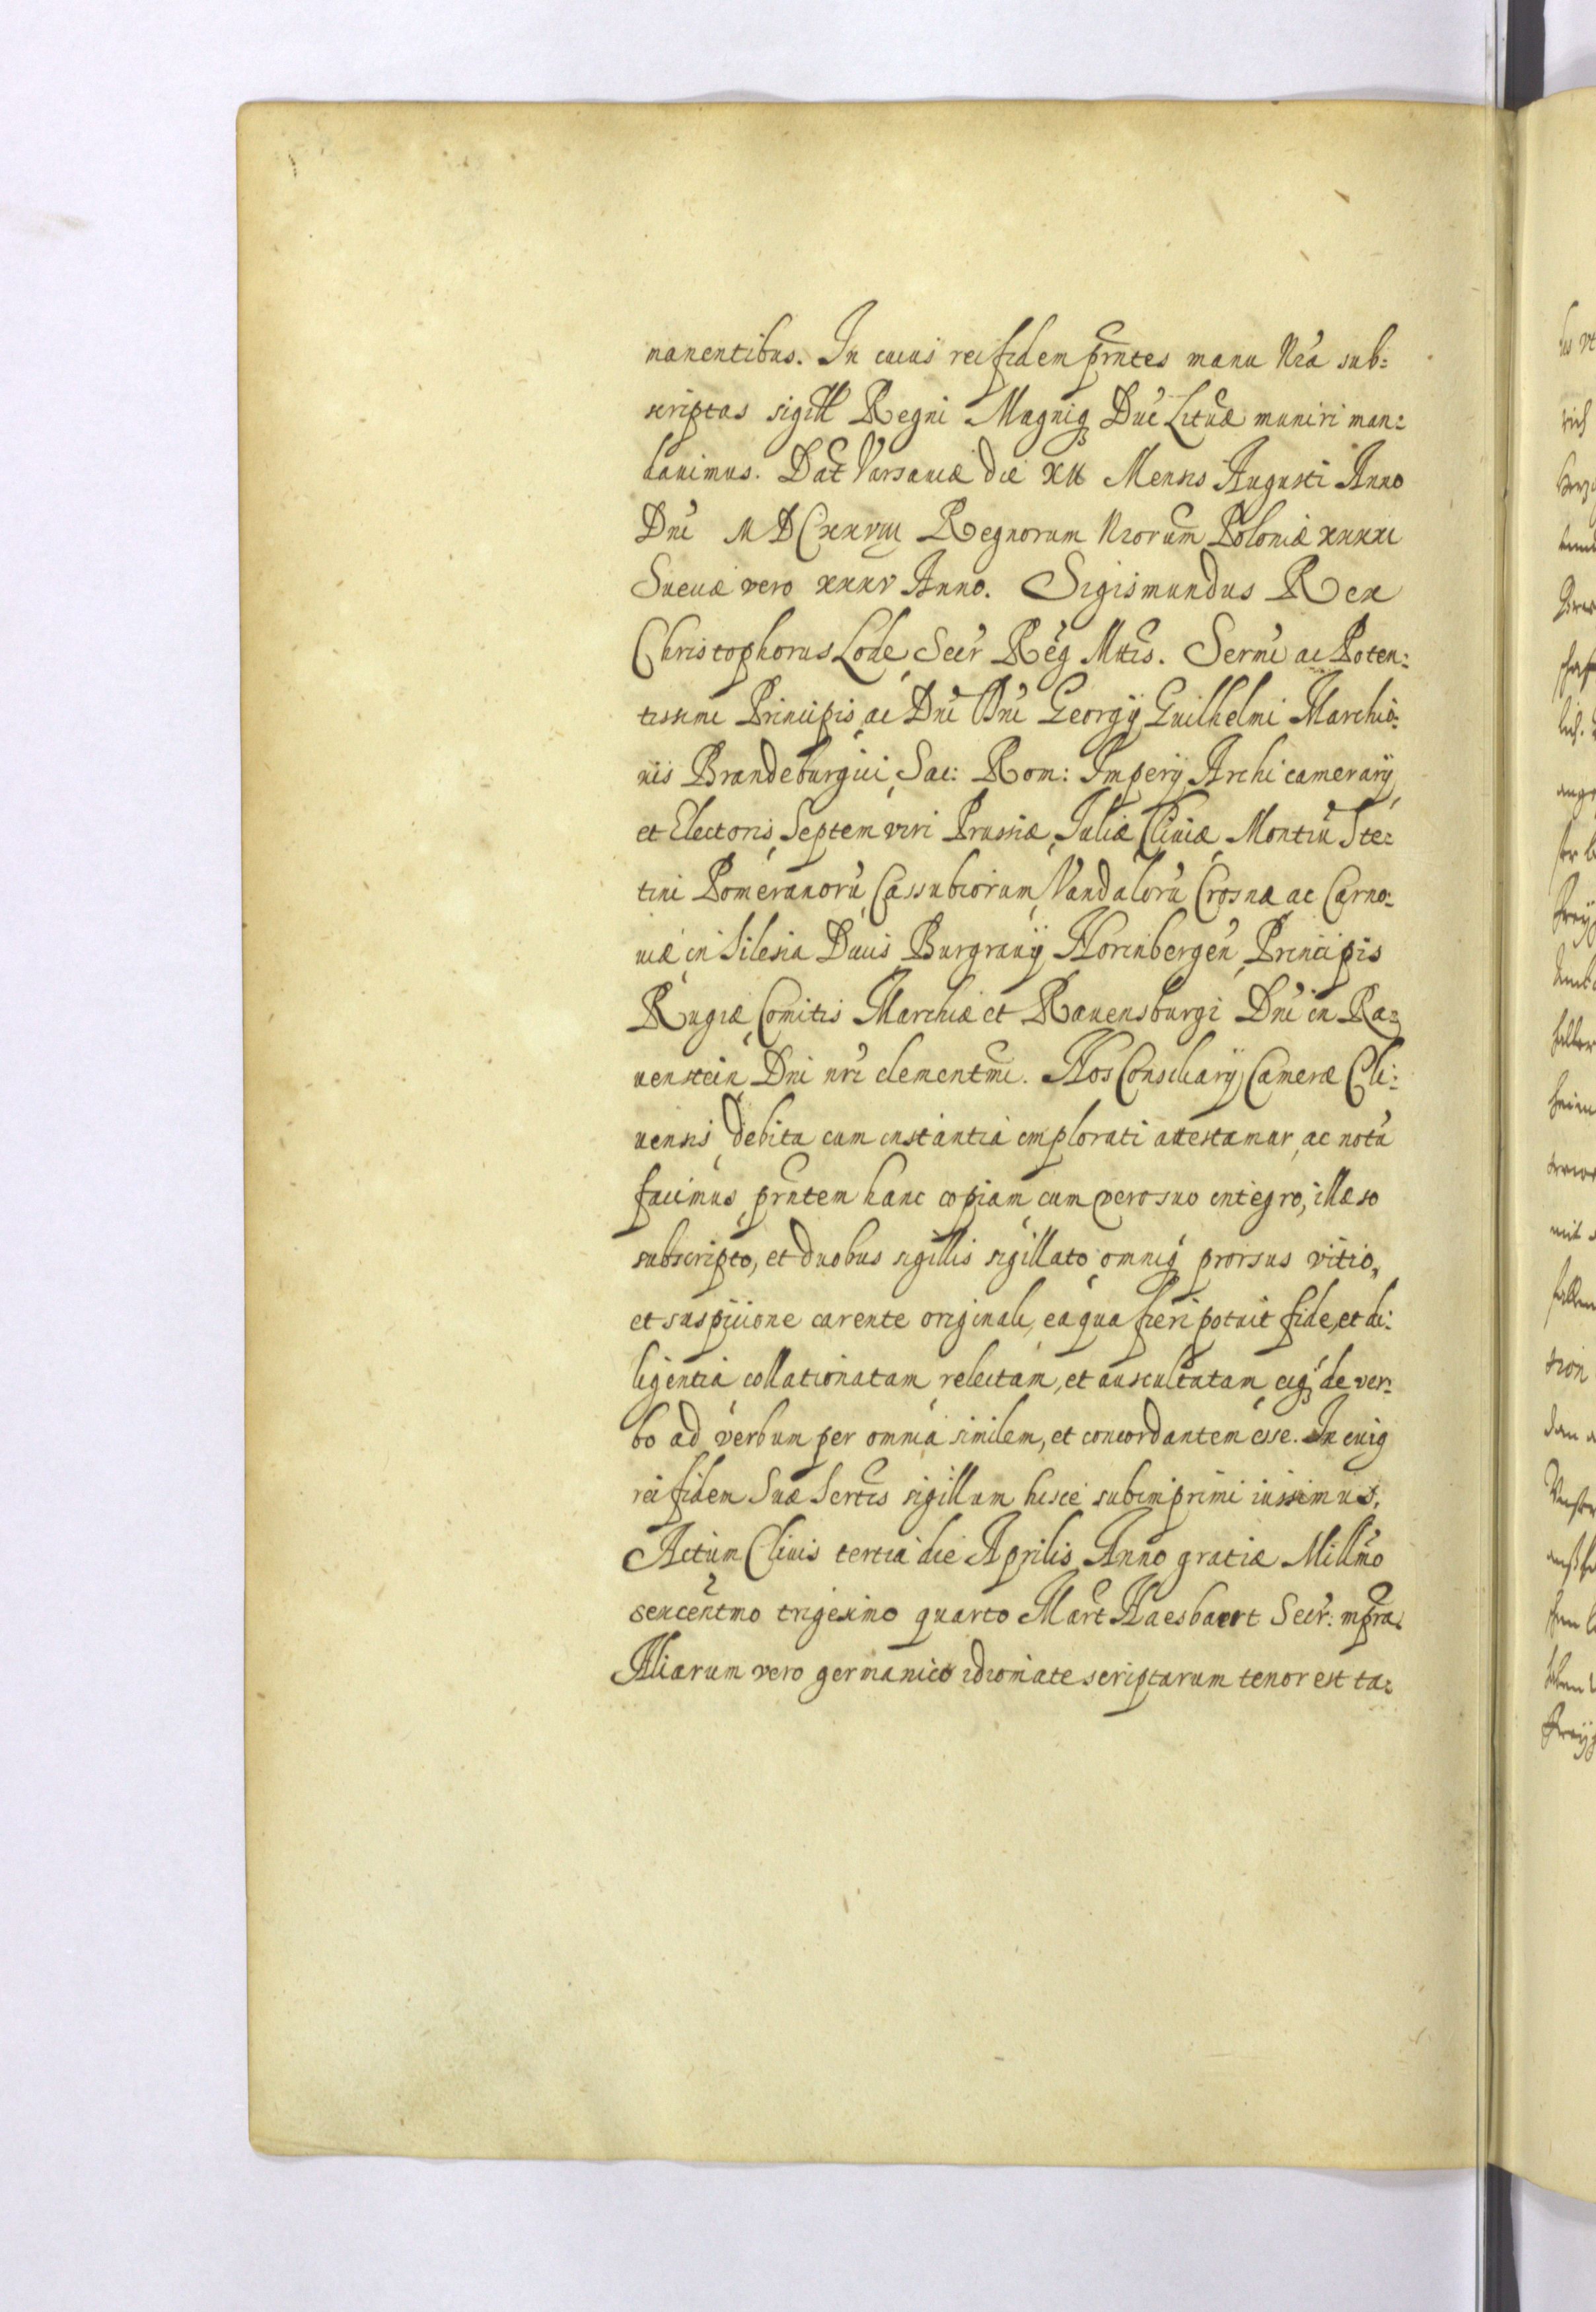 nanentibus. In cuius rei fidem prntes manu Nra sub:
scriptas sigill Regni Magniq Duc Lituæ muniri man:
davimus. Dat Varsaviæ die XII Mensis Augusti Anno
Dni MDCxxviii Regnorum Nrorum Poloniæ xxxxi
Sueciæ vero xxxv Anno. Sigismundus Rex
Christophorus Lode, Secr Reg Mttis. Sermi ac Poten:
tissimi Principis, ac Dni Dni Georgij Guilhelmi Marchio:
nis Brandeburgici, Sac: Rom: Imperij Archi camerarij,
et Electoris, Septem viri Prussiæ, Juliæ Cliviæ, Montiu Ste:
tini Pomeranoru, Cassubiorum, Vandaloru Crosnæ ac Carno:
uiæ in Silesia Ducis Burgravij Norinbergen, Principis
Rugiæ, Comitis Marchiæ et Ravensburgi Dni in Ra:
venstein, Dni nri clementmi. Nos Consiliarij Cameræ Cli:
vensis, debita cum instantia implorati attestamur, ac notu
facimus, prntem hanc copiam, cum vero suo integro, illæso
subscripto, et duobus sigillis sigillato, omniq prorsus vitio,
et suspicione carente originali, ea qua fieri potuit fide, et di:
ligentia, collationatam, relectam, et auscultatam, eiq de ver:
bo ad verbum per omnia similem, et concordantem esse. In cuiq
rei fidem Suæ Sertis sigillum hisce subimprimi iussimus.
Actum Clivis tertia die Aprilis Anno gratiæ Millmo
sexcentmo trigesimo quarto Mart Haesbaert Secr: mpra.
Aliarum vero germanico idiomate scriptarum tenor est ta: